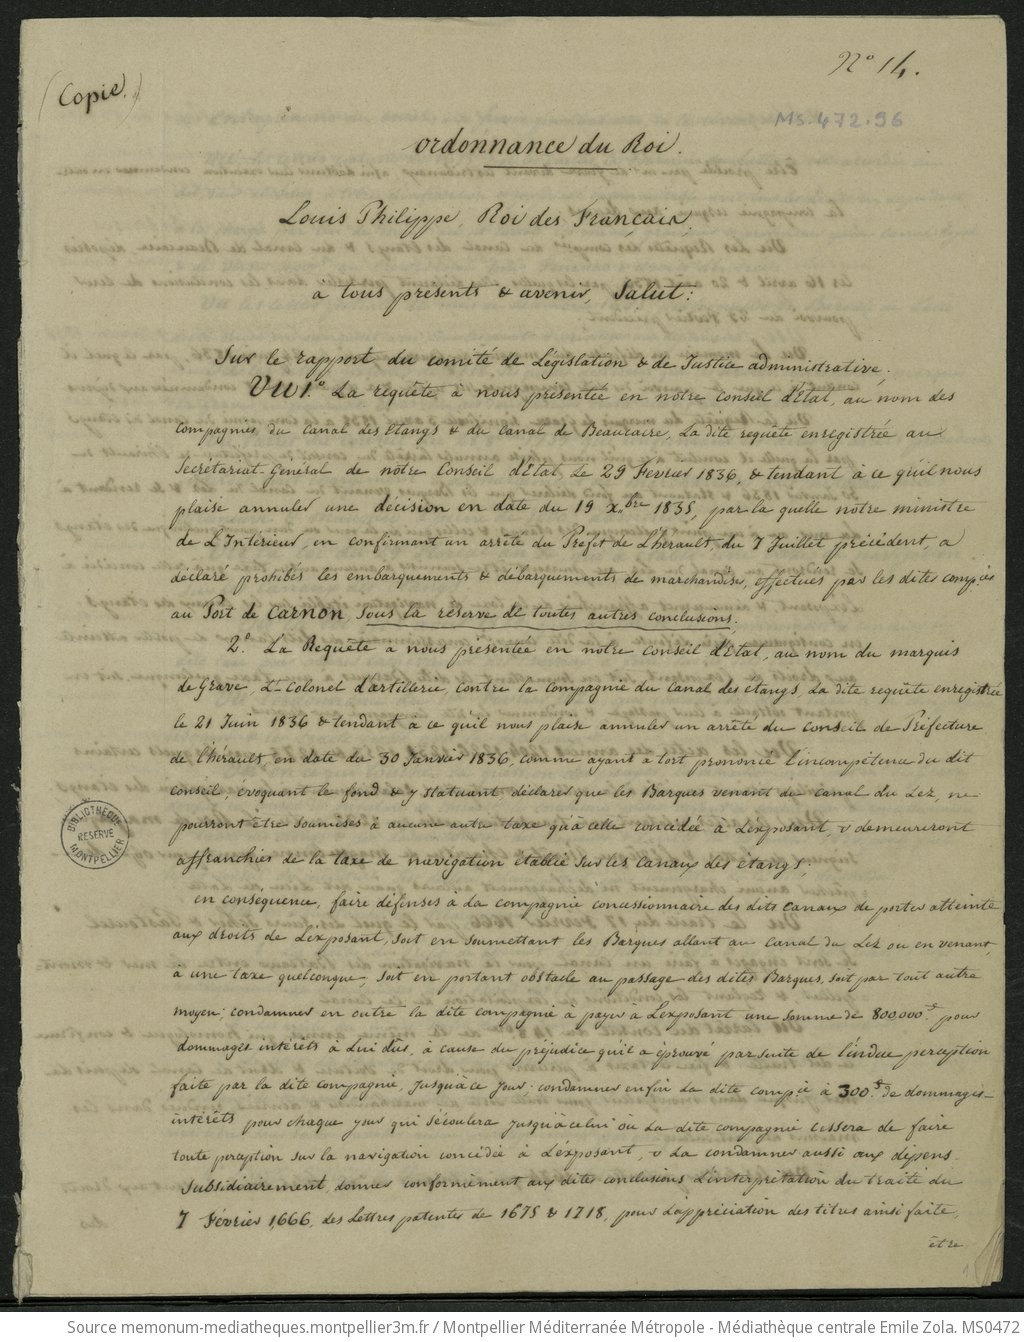 (Copie.)
N° 14.
Ms. 472.96
Ordonnance du Roi.
Louis Philippe, Roi des Français,
a tous presents & avenir, Salut:
Sur le rapport du comité de Législation & de Justice administrative.
VU 1.° La requête à nous présentée en notre conseil d'Etat, au nom des
compagnies du canal des Etangs & du canal de Beaucaire, la dite requête enregistrée au
Secrétariat-Général de notre Conseil d'Etat, le 29 Fevrier 1836, & tendant à ce qu'il nous
plaise annuler une décision en date du 19 X.bre 1835, par la quelle notre ministre
de L'Intérieur, en confirmant un arrêté du Préfet de L'hérault, du 7 Juillet précédent, a
déclaré prohibés les embarquements & débarquements de marchandises, effectués par les dites comp.ies
au Port de Carnon sous la réserve de toutes autres conclusions.
2.° La Requête a nous présentée en notre conseil d'Etat, au nom du marquis
de Grave, Lt. Colonel d'artillerie, contre la compagnie du canal des étangs, la dite requête enregistrée
le 21 Juin 1836 & tendant à ce qu'il nous plaise annuler un arrêté du conseil de Préfecture
de l'hérault, en date du 30 Janvier 1836, comme ayant à tort prononcé l'incompétence du dit
conseil; évoquant le fond & y statuant déclarer que les Barques venant du canal du Lez, ne
pourront être soumises à aucune autre taxe qu'à celle concédée à L'exposant, & demeureront
affranchies de la taxe de navigation établie sur les canaux des étangs;
en conséquence, faire défenses à la compagnie concessionnaire des dits canaux de porter atteinte
aux droits de L'exposant, soit en soumettant les Barques allant au canal du Lez ou en venant,
à une taxe quelconque, soit en portant obstacle au passage des dites Barques, soit par tout autre
moyen; condamner en outre la dite compagnie à payer à L'exposant une somme de 800,000.f pour
dommages intérêts à lui dûs, à cause du préjudice qu'il a éprouvé par suite de l'indue perception
faite par la dite compagnie, jusqu'à ce jour; condamner enfin la dite comp.ie à 300.f de dommages-
intérêts pour chaque jour qui s'écoulera jusqu'à celui où la dite compagnie cessera de faire
toute perception sur la navigation concédée à L'exposant, & la condamner aussi aux dépens.
Subsidiairement, donner conformément aux dites conclusions L'interprétation du traité du
7 Février 1666, des Lettres patentes de 1675 & 1718, pour L'appréciation des titres ainsi faite,
être
BIBLIOTHEQUE
RESERVE
MONTPELLIER
Source memonum-mediatheques.montpellier3m.fr / Montpellier Méditerranée Métropole - Médiathèque centrale Emile Zola. MS0472